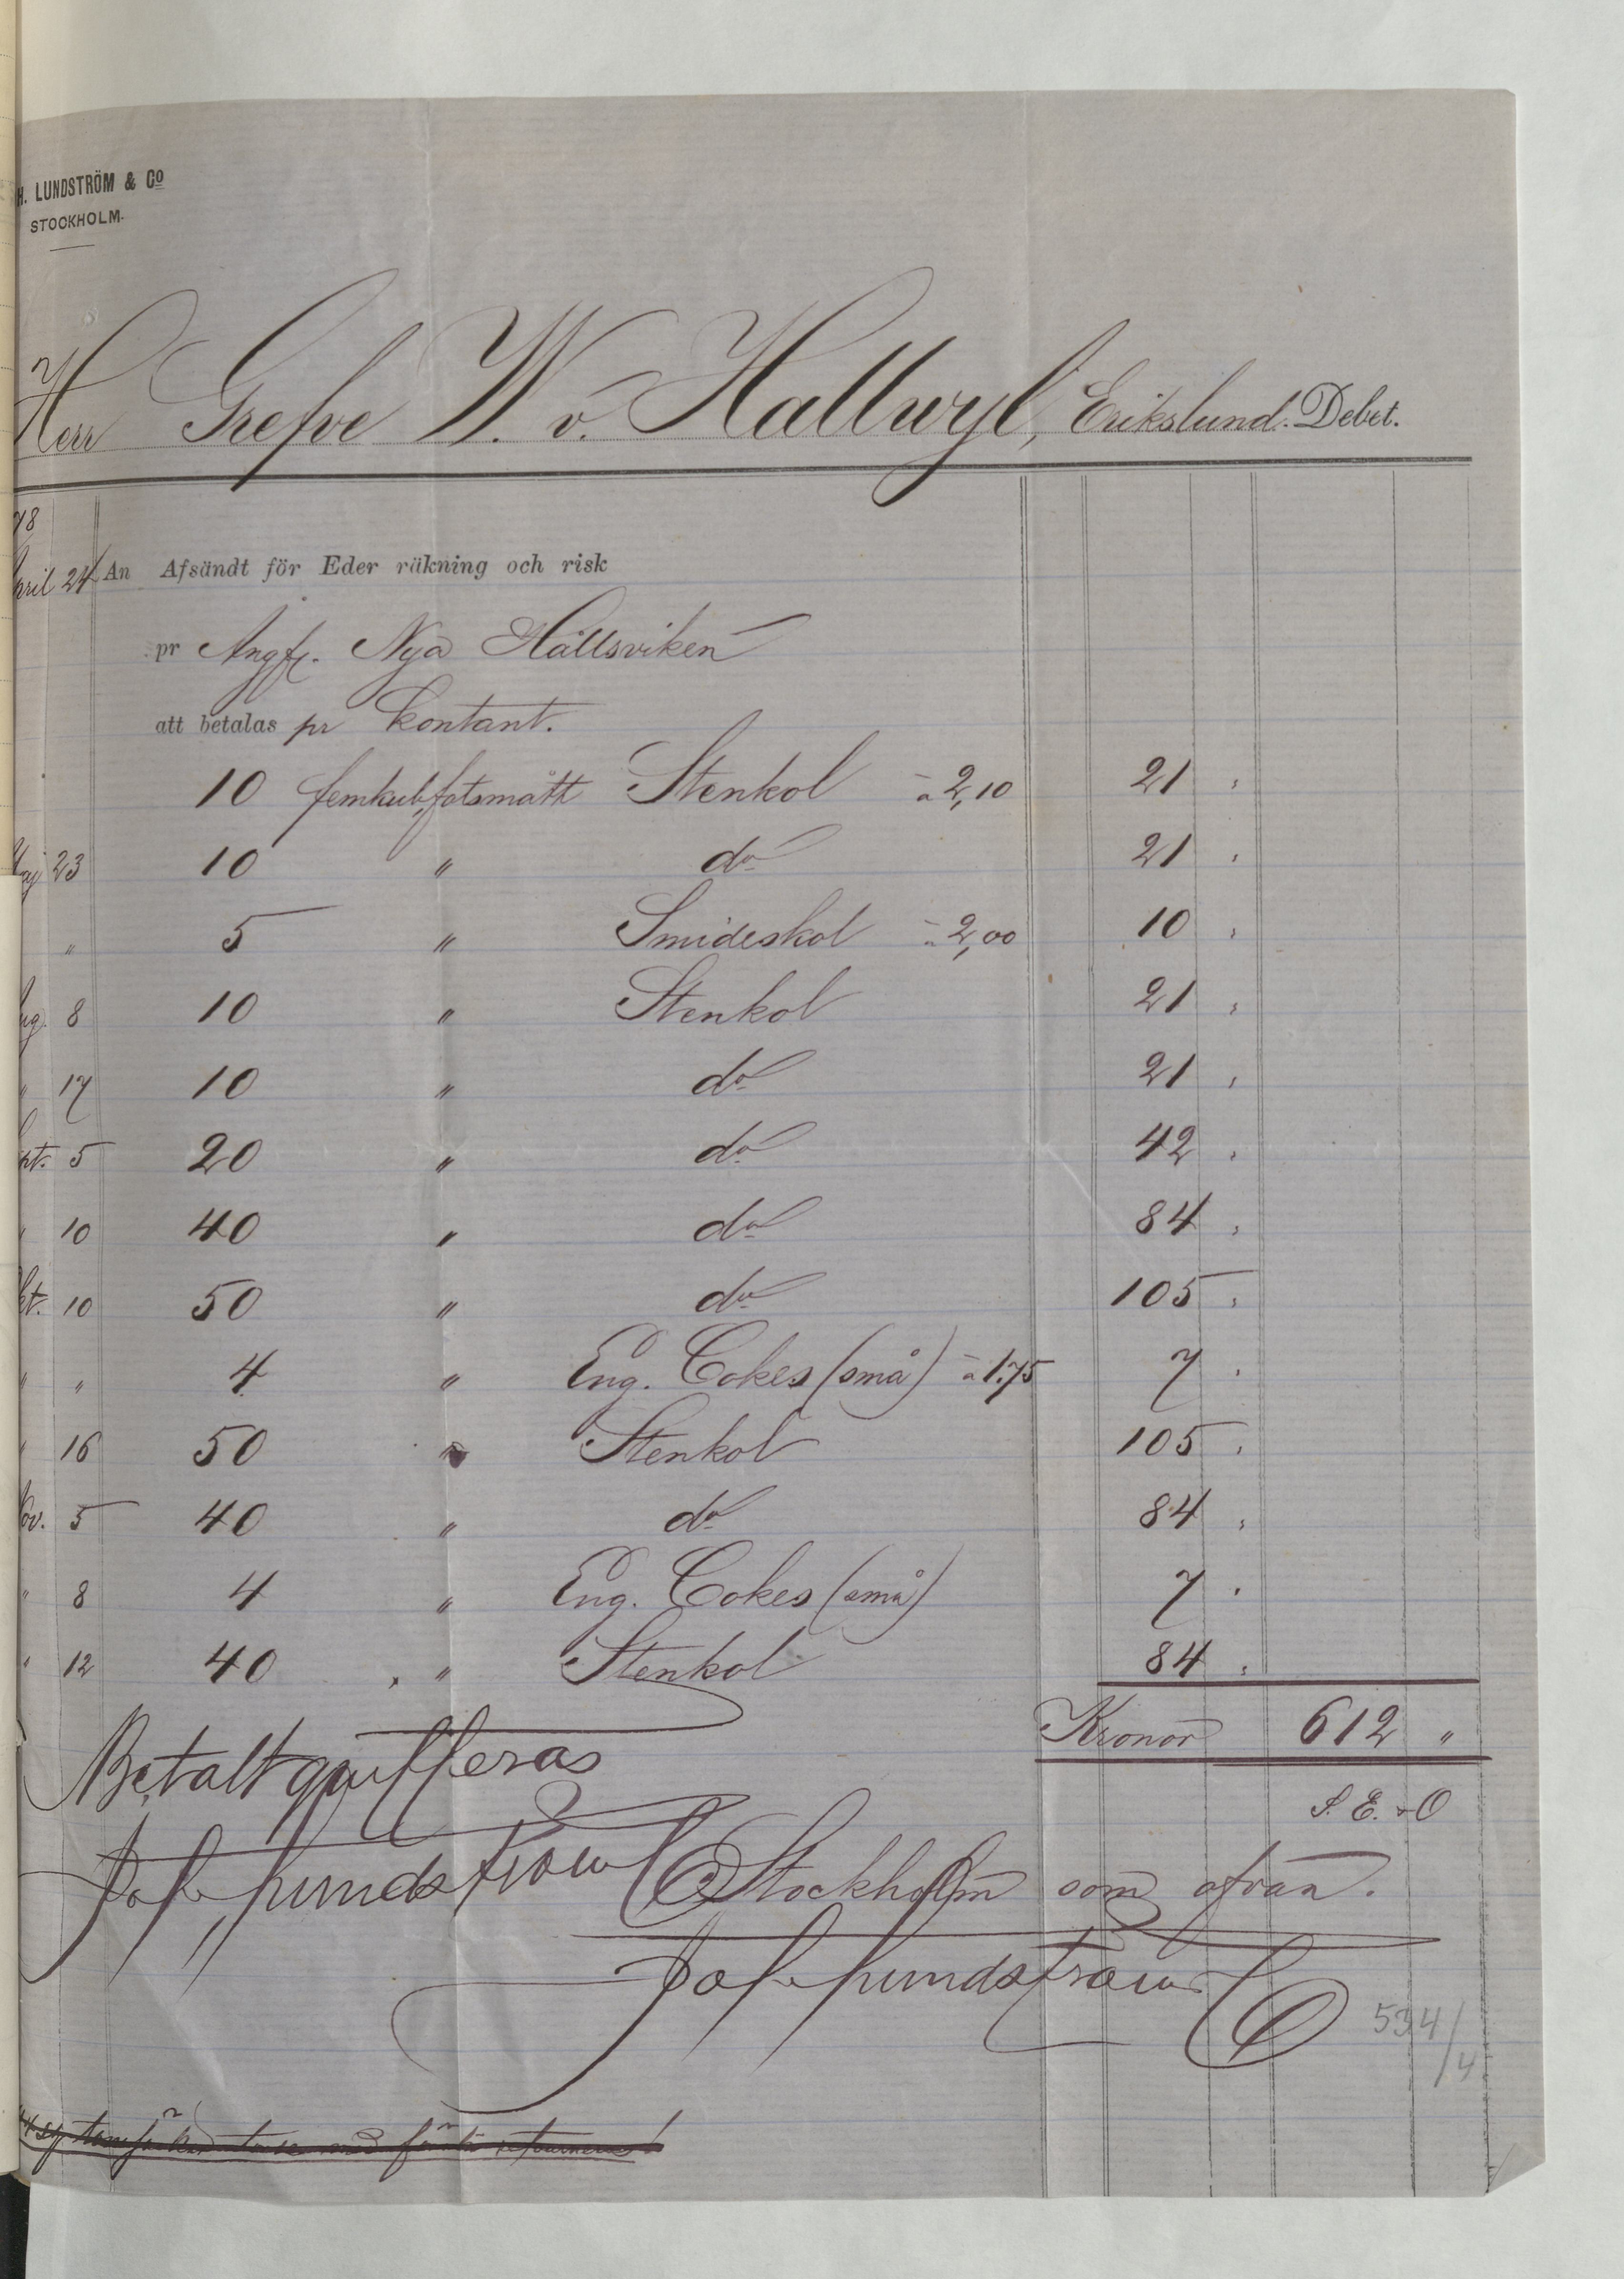 H. LUNDSTRÖM & Co
STOCKHOLM.
Herr Grefve W. v. Hallwyl, Erikslund. Debet.
78
April 24 An Afsändt för Eder räkning och risk
pr Ångf. Nya Hållsviken
att betalas pr kontant.
10 femkub.fotsmått Stenkol à 2,10 21 "
Maj 23 10 " do 21 "
" 5 " Smideskol à 2,00 10 "
Aug. 8 10 " Stenkol 21 "
" 17 10 " do 21 "
pt. 5 20 " do 42 "
" 10 40 " do 84 "
kt. 10 50 " do 105 "
" " 4 " Eng. Cokes (små) à 1.75 7 "
" 16 50 " Stenkol 105 "
Nov. 5 40 " do 84 "
" 8 4 " Eng. Cokes (små) 7 "
" 12 40 " Stenkol 84 "
Kronor 612 "
Betalt qvitteras
S. E. & O
Joh Lundström & Co
Stockholm som ofvan.
Joh Lundström & Co
534/4